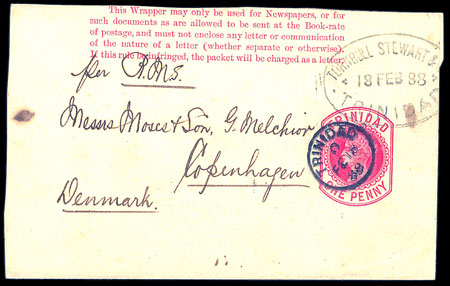 This Wrapper may only be used for Newspapers, or for
such documents as are allowed to be sent at the Book-rate
of postage, and must not enclose any letter or communication
of the nature of a letter (whether separate or otherwise).
If this rule be infringed, the packet will be charged as a letter.
per R.M.S.
TURNBULL STEWART &
18 FEB 88
TRINIDAD
Messrs Moses & Son, G. Melchior
Copenhagen
Denmark.
TRINIDAD
ONE PENNY
TRINIDAD
FE 18
88